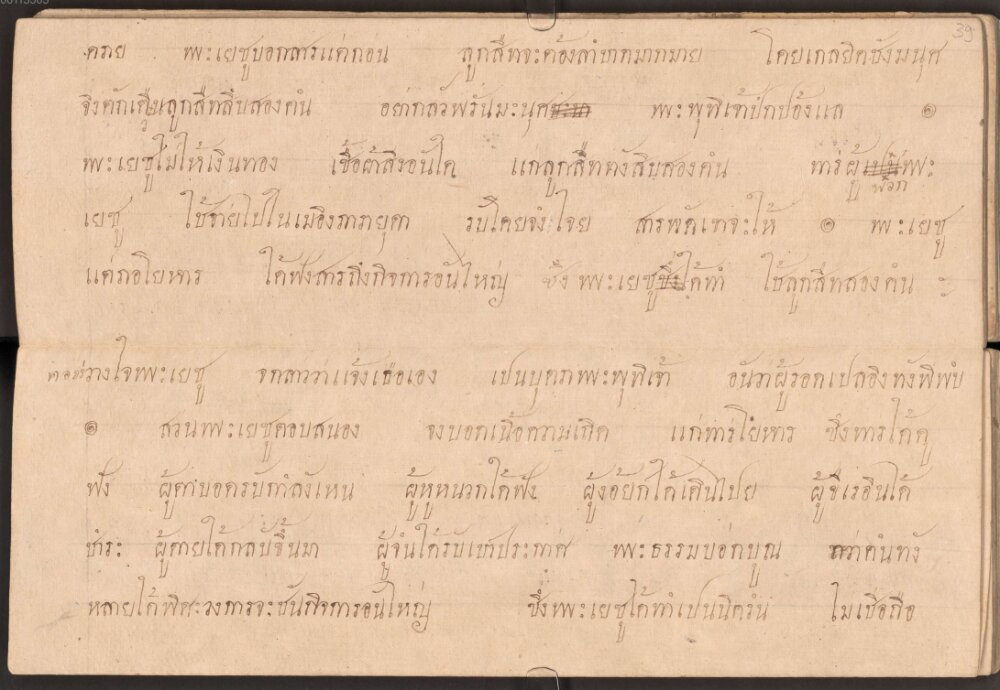 39
ตราย พระเยซูบอกสารแต่ก่อน ลูกสึทจะต้องลำบาทมากมาย โดยเกลยิดชังมนุศ
จึงตักเตือนลูกสึทสิบสองคํน อย่ากลัวพรั่นมะนุศ พระพุทิเจ้าปักป้องแล ๑
พระเยซูไม่ให้เงินทอง เสื้อผ้าสิ่งอันใด แก่ลูกสึททังสิบสองคํน ทารผู้ พวก พระ
เยซู ใช้จ่ายไปในเมือง รับโดยจํงใจย สารพัดเขาจะให้ ๑ พระเยซู
แต่ก่อโยฮาร ได้ฟังสารถึงกิจการอันใหญ่ ซึ่ง พระเยซูได้ทำ ใช้ลูกสึทสองคํน ะ
วางใจพระเยซู จกล่าวว่าแจ้งเธอเอง เปนบุตรพระพุทิเจ้า อันว่าผู้รอดเปลอิงทังพิพํบ
๑ สวนพระเยซูตอบสนอง จงบอกเนื้อความเถิด แก่ท่ารโยฮาร ซึ่งทารได้ดู
ฟัง ผู้ตาบอดรับกำลังเหน ผู้หูหนวกได้ฟัง ผู้ง่อยก็ได้เดินไปย ผู้ขี้เรอินได้
ชำระ ผู้ตายได้กลับขึ้นมา ผู้จํนได้รับเขาประกาศ พระธรรมบอกบูญ กว่าคํนทัง
หลายได้พิศะวงการจะชันกิจการอันใหญ่ ซึ่งพระเยซูได้ทำเปนนิดรํน ไม่เชือถือ